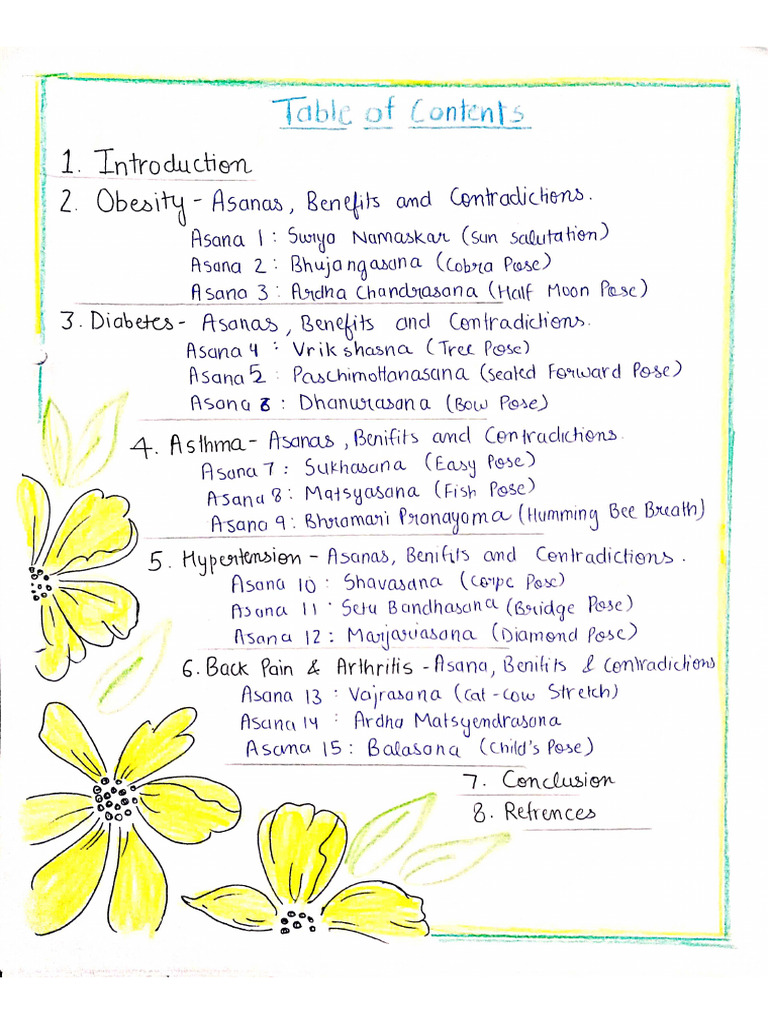 Table of Contents
1. Introduction
2. Obesity - Asanas, Benefits and Contradictions.
Asana 1 : Surya Namaskar (Sun Salutation)
Asana 2 : Bhujangasana (Cobra Pose)
Asana 3 : Ardha Chandrasana (Half Moon Pose)
3. Diabetes - Asanas, Benefits and Contradictions.
Asana 4 : Vrikshasna (Tree Pose)
Asana 5 : Paschimottanasana (seated Forward Pose)
Asana 6 : Dhanurasana (Bow Pose)
4. Asthma - Asanas, Benifits and Contradictions.
Asana 7 : Sukhasana (Easy Pose)
Asana 8 : Matsyasana (Fish Pose)
Asana 9 : Bhramari Pranayama (Humming Bee Breath)
5. Hypertension - Asanas, Benifits and Contradictions.
Asana 10 : Shavasana (Corpe Pose)
Asana 11 : Setu Bandhasana (Bridge Pose)
Asana 12 : Marjariasana (Diamond Pose)
6. Back Pain & Arthritis - Asana, Benifits & Contradictions
Asana 13 : Vajrasana (Cat-cow Stretch)
Asana 14 : Ardha Matsyendrasana
Asana 15 : Balasana (Child's Pose)
7. Conclusion
8. Refrences